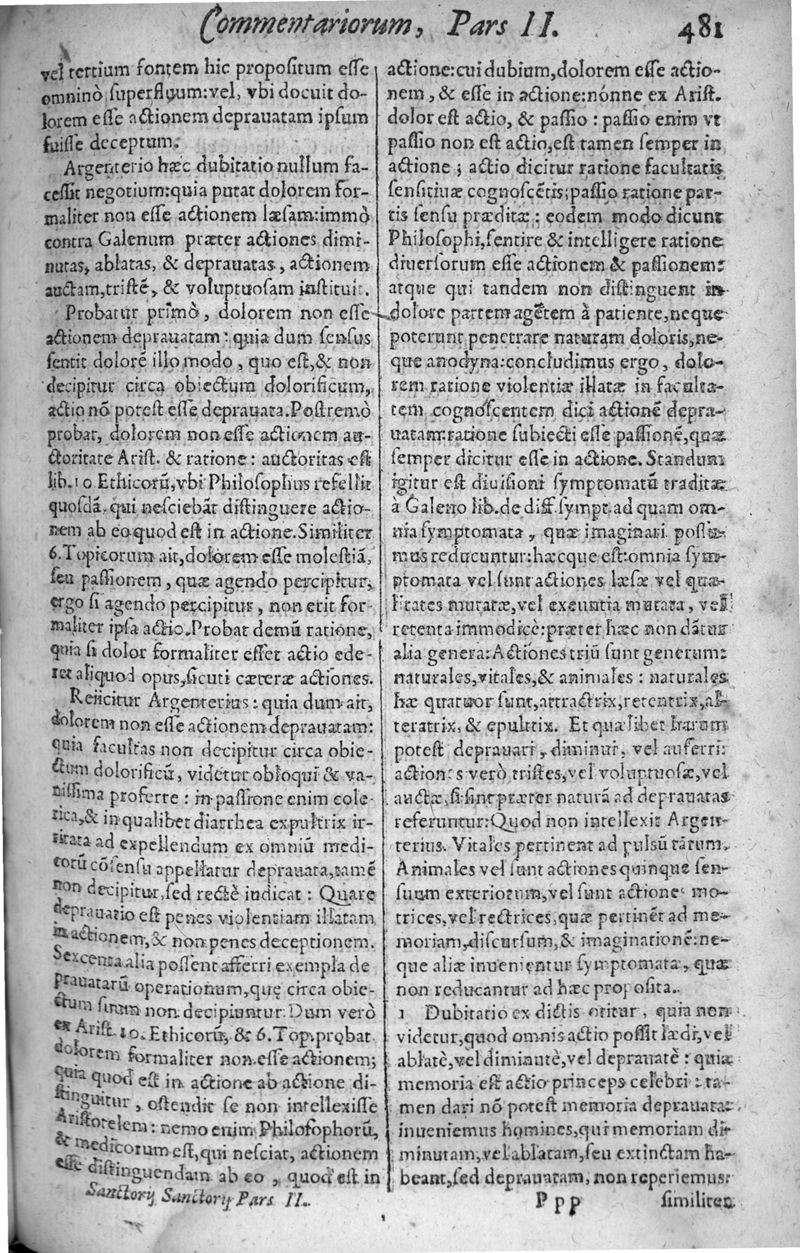 Commentariorum, Pars II. 481
vel tertium fontem hic propositum eſſe
omninò ſuperfluum:vel, vbi docuit do-
lorem eſſe actionem deprauatam ipſum
fuiſſe deceptum.
Argenterio hæc dubitatio nullum fa-
ceſſit negotium:quia putat dolorem for-
maliter non eſſe actionem læſam:immò
contra Galenum præter actiones dimi-
nutas, ablatas, & deprauatas, actionem
auctam,triſtē, & voluptuoſam inſtituit.
Probatur primò, dolorem non eſſe
actionem deprauatam: quia dum ſenſus
ſentit dolorē illo modo, quo eſt,& non
decipitur circa obiectum dolorificum,
actio nō poteſt eſſe deprauata.Poſtremò
probat, dolorem non eſſe actionem au-
ctoritate Ariſt. & ratione: auctoritas eſt
lib.10 Ethicorū,vbi Philoſophus refellit
quoſdā, qui neſciebāt diſtinguere actio-
nem ab eo quod eſt in actione.Similiter
6.Topicorum ait,dolorem eſſe moleſtiā,
ſeu paſſionem, quæ agendo percipitur,
ergo ſi agendo percipitur, non erit for-
maliter ipſa actio.Probat demū ratione,
quia ſi dolor formaliter eſſet actio ede-
ret aliquod opus,ſicuti cæteræ actiones.
Reijcitur Argenterius: quia dum ait,
dolorem non eſſe actionem deprauatam:
quia facultas non decipitur circa obie-
ctum dolorificū, videtur obloqui & va-
niſſima proferre: in paſſione enim cole-
rica,& in qualibet diarrhea expultrix ir-
ritata ad expellendum ex omniū medi-
corū cōſenſu appellatur deprauata,tamē
non decipitur,ſed rectè iudicat: Quare
deprauatio eſt penes violentiam illatam
in actionem,& non penes deceptionem.
Sexcenta alia poſſent afferri exempla de
prauatarū operationum,quę circa obie-
ctum ſuum non decipiuntur. Dum verò
ex Ariſt. 10. Ethicorū, & 6. Top. probat
dolorem formaliter non eſſe actionem;
quia quod eſt in actione ab actione di-
ſtinguitur, oſtendit ſe non intellexiſſe
Ariſtotelem: nemo enim Philoſophorū,
& medicorum eſt,qui neſciat, actionem
eſſe diſtinguendam ab eo, quod eſt in
Sanctorij Sanctorij Pars II.
actione:cui dubium,dolorem eſſe actio-
nem, & eſſe in actione:nónne ex Ariſt.
dolor eſt actio, & paſſio: paſſio enim vt
paſſio non eſt actio,eſt tamen ſemper in
actione; actio dicitur ratione facultatis
ſenſitiuæ cognoſcētis;paſſio ratione par-
tis ſenſu præditæ: eodem modo dicunt
Philoſophi,ſentire & intelligere ratione
diuerſorum eſſe actionem & paſſionem:
atque qui tandem non diſtinguent in
dolore partem agētem à patiente,neque
poterunt penetrare naturam doloris,ne-
que anodyna:concludimus ergo, dolo-
rem ratione violentiæ illatæ in faculta-
tem cognoſcentem dici actionē depra-
uatam:ratione ſubiecti eſſe paſſionē,quæ
ſemper dicitur eſſe in actione. Standum
igitur eſt diuiſioni ſymptomatū traditæ
à Galeno lib.de diff.ſympt.ad quam om-
nia ſymptomata, quæ imaginari poſſu-
mus reducuntur:hæcque eſt:omnia ſym-
ptomata vel ſunt actiones læſæ vel qua-
litates mutatæ,vel exeuntia mutata, vel
retenta immodicè:præter hæc non dātur
alia genera:Actiones triū ſunt generum:
naturales,vitales,& animales: naturales
hæ quatuor ſunt,attractrix,retentrix,al-
teratrix, & epultrix. Et quælibet harum
poteſt deprauari, diminui, vel auferri:
actiones verò triſtes,vel voluptuoſæ,vel
auctæ,ſi ſint præter naturā ad deprauatas
referuntur:Quod non intellexit Argen-
terius. Vitales pertinent ad pulſū tātum.
Animales vel ſunt actiones quinque ſen-
ſuum exteriorum,vel ſunt actiones mo-
trices,vel rectrices,quæ pertinēt ad me-
moriam,diſcurſum,& imaginationē:ne-
que aliæ inuenientur ſymptomata, quæ
non reducantur ad hæc propoſita.
1 Dubitatio ex dictis oritur, quia non
videtur,quod omnis actio poſſit lædi,vel
ablatè,vel diminutè,vel deprauatè: quia
memoria eſt actio princeps celebri: ta-
men dari nō poteſt memoria deprauata:
inueniemus homines,qui memoriam di-
minutam,vel ablatam,ſeu extinctam ha-
beant,ſed deprauatam, non reperiemus:
Ppp ſimiliter